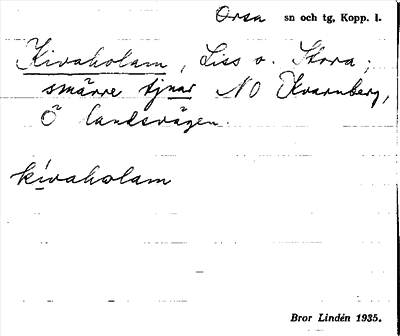 Orsa sn och tg, Kopp. l.
Kivaholam, Liss o. Stora;
smärre tjnar NO Kvarnberg,
Ö landsvägen.
kívahol̄am
Bror Lindén 1935.